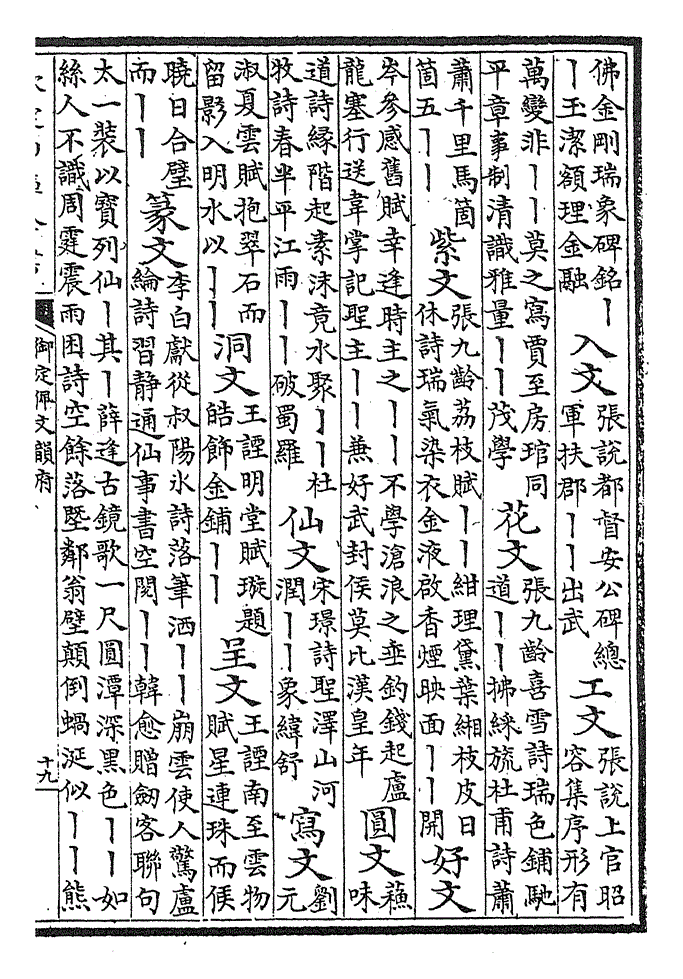 佛金剛瑞象碑銘丨
丨玉潔額理金融
入文
張說都督安公碑總
軍扶郡丨丨出武
工文
張說上官昭
容集序形有
萬變非丨丨莫之寫賈至房琯同
平章事制清識雅量丨丨茂學
花文
張九齡喜雪詩瑞色鋪馳
道丨丨拂綵旒杜甫詩蕭
蕭千里馬箇
箇五丨丨
紫文
張九齡荔枝賦丨丨紺理黛葉緗枝皮日
休詩瑞氣染衣金液啟香煙映面丨丨開
好文
岑參感舊賦幸逢時主之丨丨不學滄浪之垂釣錢起盧
龍塞行送韋掌記聖主丨丨兼好武封侯莫比漢皇年
圓文
蘓
味
道詩縁階起素沫竟水聚丨丨杜
牧詩春半平江雨丨丨破蜀羅
仙文
宋璟詩聖澤山河
潤丨丨象緯舒
寫文
劉
元
淑夏雲賦抱翠石而
留影入明水以丨丨
洞文
王諲明堂賦璇題
皓飾金鋪丨丨
呈文
王諲南至雲物
賦星連珠而候
曉日合璧
而丨丨
篆文
李白獻從叔陽冰詩落筆洒丨丨崩雲使人驚盧
綸詩習静通仙事書空閲丨丨韓愈贈劒客聯句
太一裝以寶列仙丨其丨薛逢古鏡歌一尺圓潭深黑色丨丨如
絲人不識周霆震雨困詩空餘落墍鄰翁壁顛倒蝸涎似丨丨熊
御定佩文韻府
十九